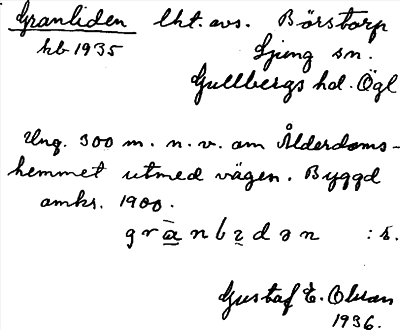 Granliden lht. avs. Börstorp
kb 1935 Ljung sn.
Gullbergs hd. Ögl
Ung. 300 m. n. v. om Ålderdoms-
hemmet utmed vägen. Byggd
omkr. 1900.
:s.
Gustaf E. Olsson
1936.